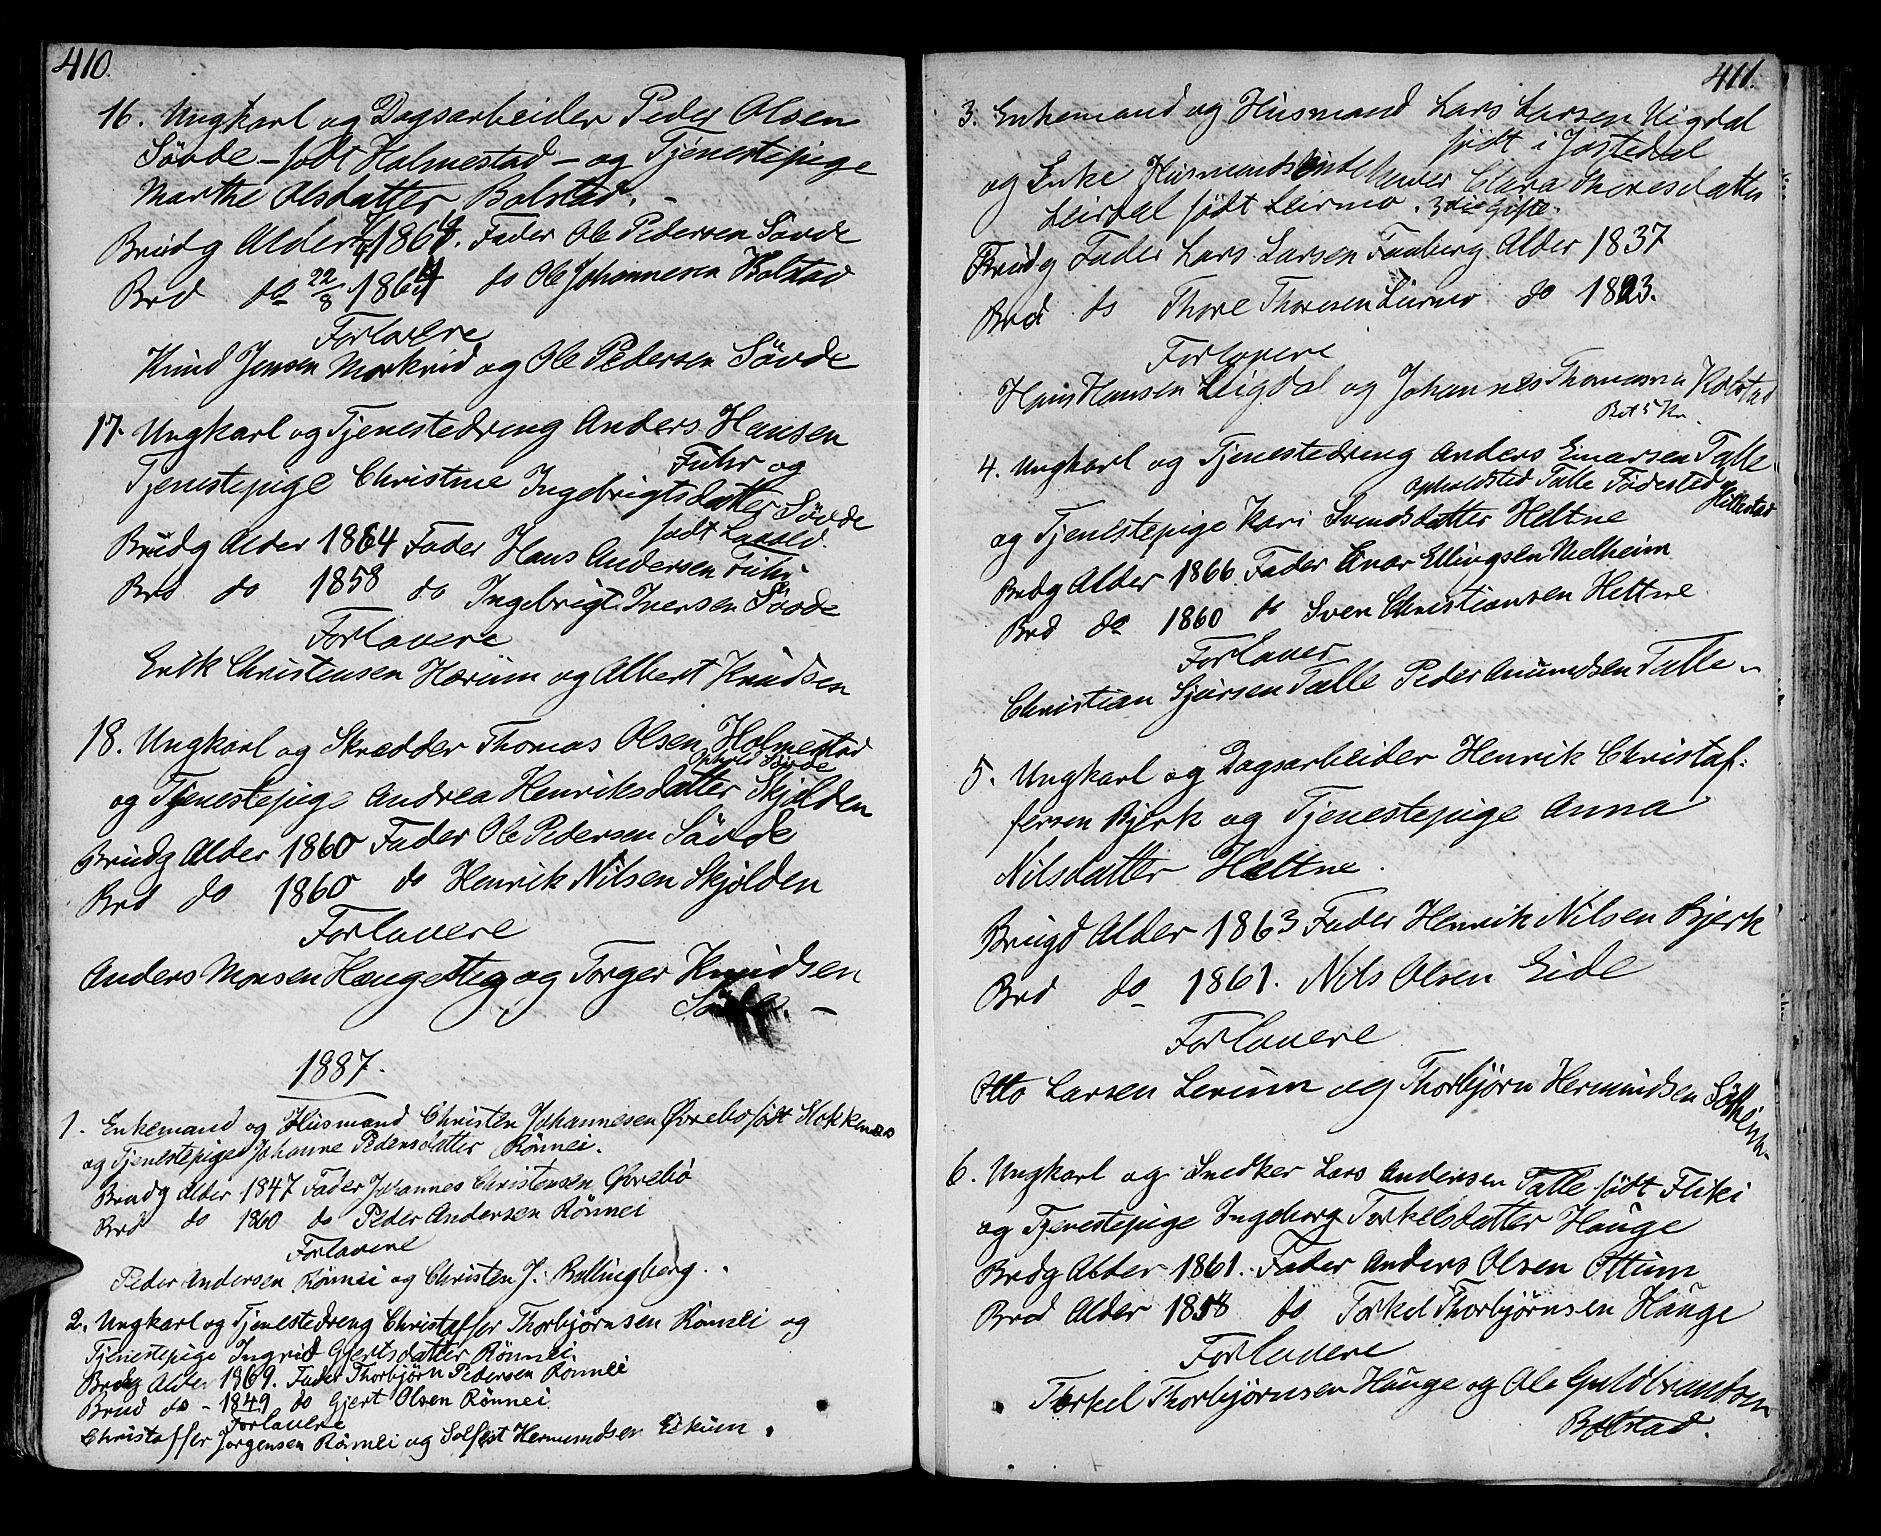 410.
16. Ungkarl og Dagsarbeider Peder Olsen
Søvde – født Holmestad – og Tjenestepige
Marthe Olsdatter Bolstad. –
Brudg Alder 1864. Fader Ole Pedersen Søvde
Brd do 22/8 1864 do Ole Johannesen Bolstad
Forlovere
Knud Jensen Morkrid og Ole Pedersen Søvde
17. Ungkarl og Tjenestedreng Anders Hansen
Fuhr og
Tjenestepige Christine Ingebrigtsdatter Søvde
født
Brudg Alder 1864 Fader Hans Andersen Fuhr
Brd do 1858 do Ingebrigt Iversen Søvde
Forlovere
Erik Christensen Hærum og Albert Knudsen
18. Ungkarl og Skrædder Thomas Olsen Holmestad
Ophold Søvde
og Tjenestepige Andrea Henriksdatter Skjolden
Brudg Alder 1860 Fader Ole Pedersen Søvde
Brd do 1860 do Henrik Nilsen Skjolden
Forlovere
Anders Monsen Haugesteg og Torger Knudsen
Søvde. –
1887.
1. Enkemand og Husmand Christen Johannesen Øvrebø født Kløkkenæs
og Tjenestepige Johanne Pedersdatter Rönnei.
Brudg Alder 1847 Fader Johannes Christensen Øvrebø
Brd do 1860 do Peder Andersen Rönnei
Forlovere
Peder Andersen Rönnei og Christen J. Bollingberg.
2. Ungkarl og Tjenestedreng Christaffer Thorbjørnsen Rönnei og
Tjenestepige Ingrid Gjertsdatter Rönnei
Brdg Alder 1869. Fader Thorbjørn Pedersen Rönnei
Brud do – 1849 do Gjert Olsen Rönnei
Forlovere
Christaffer Jørgensen Rönnei og Solfest Hermundsen Ekum.
411.
3. Enkemand og Husmand Lars Larsen Vigdal
født i Jostedal
og Enke Clara Thoresdatter
Leirdal født Leirmo. 3die Gifte.
Brudg Fader Lars Larsen Faaberg Alder 1837
Brd do Thore Thoresen Leirmo do 1823.
Forlovere
Hans Hansen Leigdal og Johannes Thomassen Kolstad
Bet 5 Kr
4. Ungkarl og Tjenestedreng Anders Enarsen Talle
Opholdsted Talle Fødested
og Tjenestepige Kari Svendsdatter Heltne
Brdg Alder 1866. Fader Enar Ellingsen Melheim
Brd do 1860 do Sven Christiansen Heltne
Forlover
Christian Sjursen Talle Peder Amundsen Talle –
5. Ungkarl og Dagsarbeider Henrik Christaf-
fersen Bjerk og Tjenestepige Anna
Nilsdatter Heltne.
Brugd Alder 1863 Fader Henrik Nilsen Bjerk
Brd do 1861. Nils Olsen Eide
Forlovere
Otto Larsen Lerum og Thorbjørn Hermundsen
6. Ungkarl og Snedker Lars Andersen Talle født Flikei
og Tjenestepige Ingeborg Torkelsdatter Hauge
Brdg Alder 1861. Fader Anders Olsen Ottum
Brd Alder 1858 do Torkel Thorbjørnsen Hauge
Forlovere
Torkel Thorbjørnsen Hauge og Ole Guldbrandsen
Bolstad.